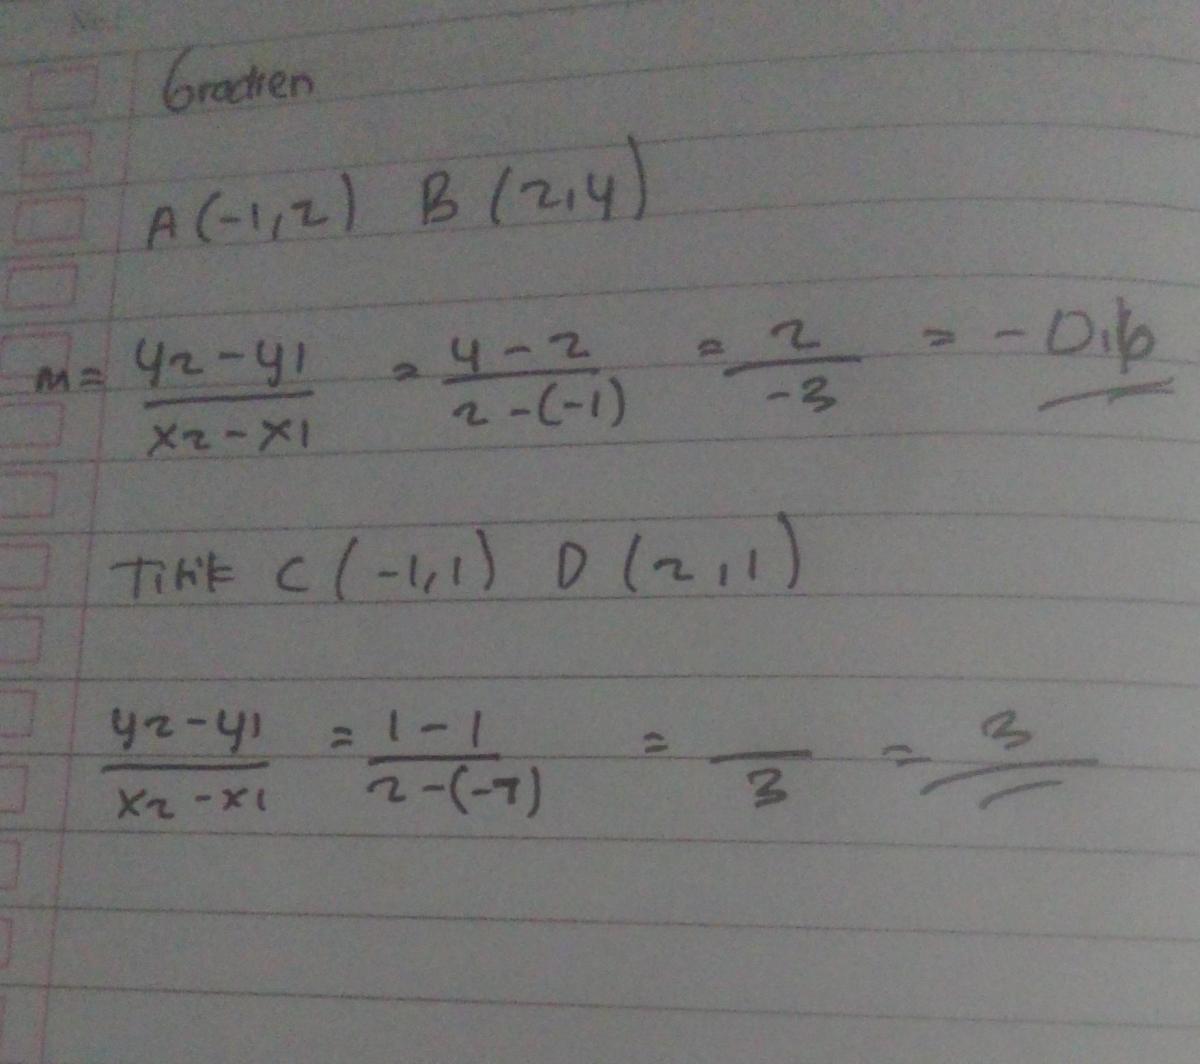 Gradien
A(-1,2) B (2,4)
m = y2-y1 / x2-x1 = 4-2 / 2-(-1) = 2 / -3 = -0,6
Titik C (-1,1) D (2,1)
y2-y1 / x2-x1 = 1-1 / 2-(-1) = / 3 = 3